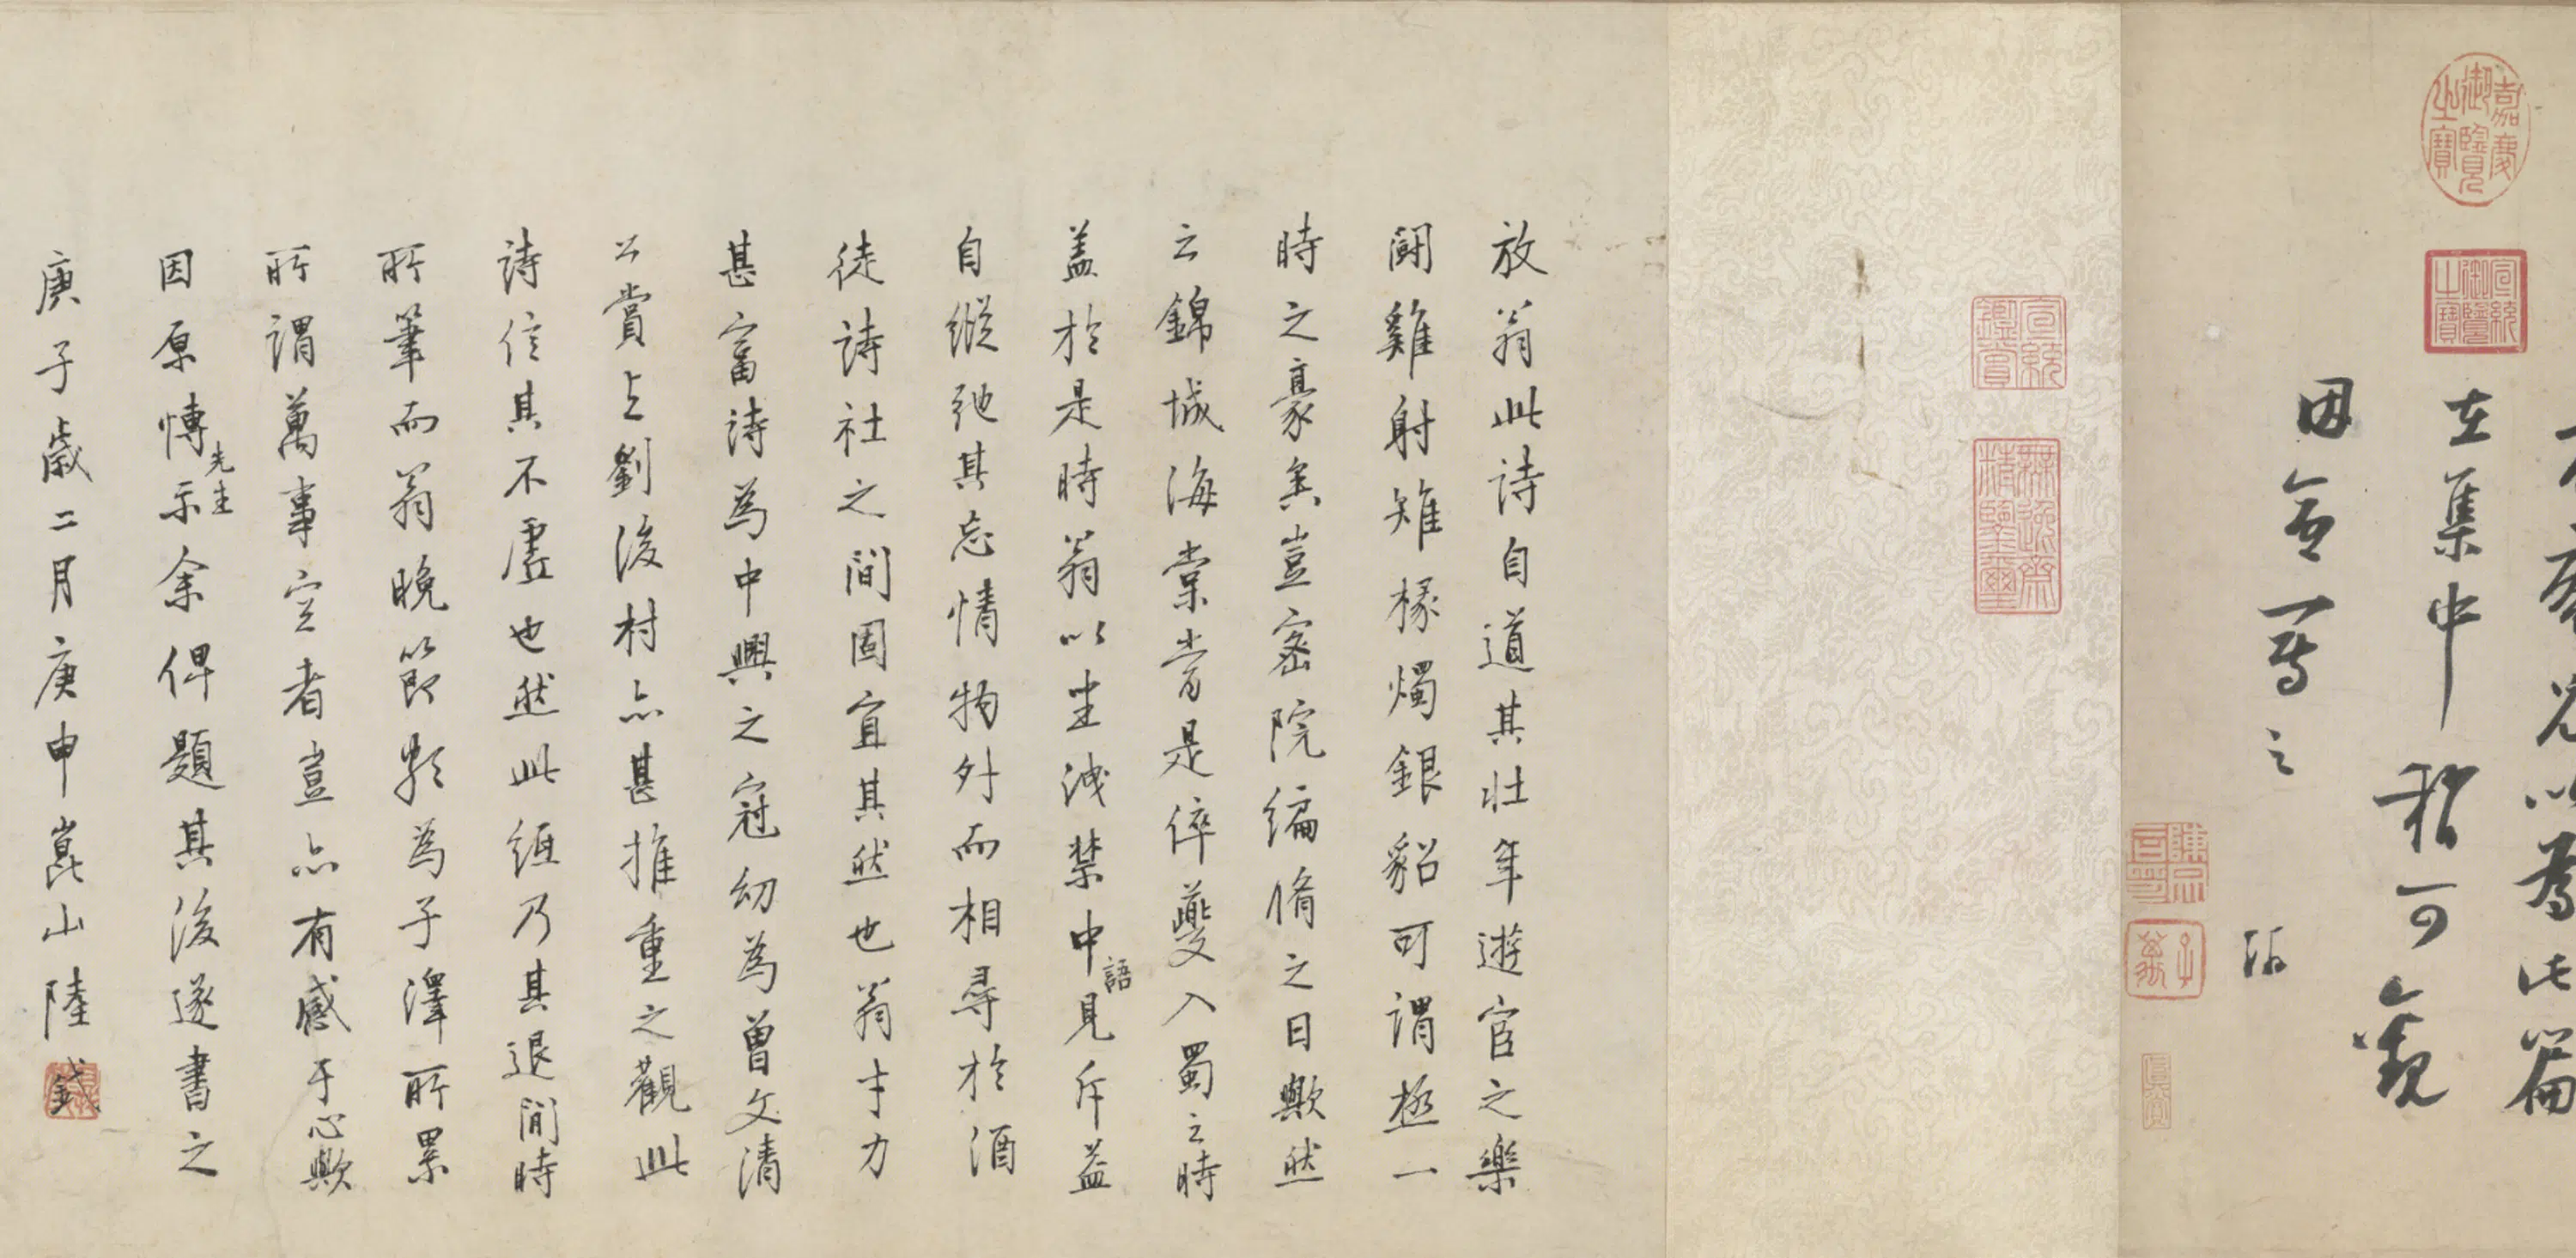 嘉慶御覽之寶
宣統御覽之寶
兄以為此篇
在集中稍可觀
因命寫之
游
宣統鑑賞
無逸齋精鑒璽
放翁此詩自道其壯年遊宦之樂
鬪雞射雉椽燭銀貂可謂極一
時之豪矣豈密院編脩之日歟然
云錦城海棠當是倅夔入蜀之時
盖於是時翁以坐洩禁中語見斥益
自縱弛其忘情物外而相尋於酒
徒詩社之間固宜其然也翁才力
甚富詩為中興之冠幼為曾文清
公賞与劉後村亦甚推重之觀此
詩信其不虛也然此紙乃其退閒時
所筆而翁晚節頗為子澤所累
所謂萬事空者豈亦有感于心歟
因原博先生示余俾題其後遂書之
庚子歲二月庚申崑山陸釴